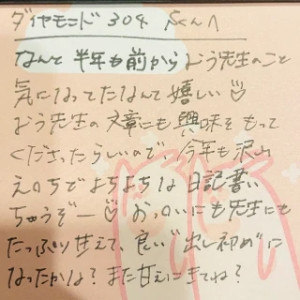 ダイヤモンド304 Sくんへ
なんて半年も前からよう先生のこと
気になってたなんて嬉しい♡
よう先生の文章にも興味をもって
くださったらしいので、今年も沢山
えロちでよちよちな日記書い
ちゃうぞー♡ おっロいにも先生にも
たっぷり甘えて、良い"出し初め"に
なったかな?また甘えにきてね?